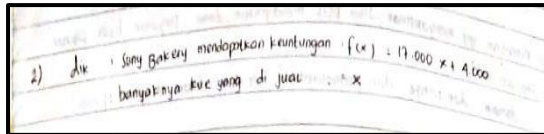 2) dik : Sony Bakery mendapatkan keuntungan f(x) : 17.000 x + 4.000
banyaknya kue yang di jual : x